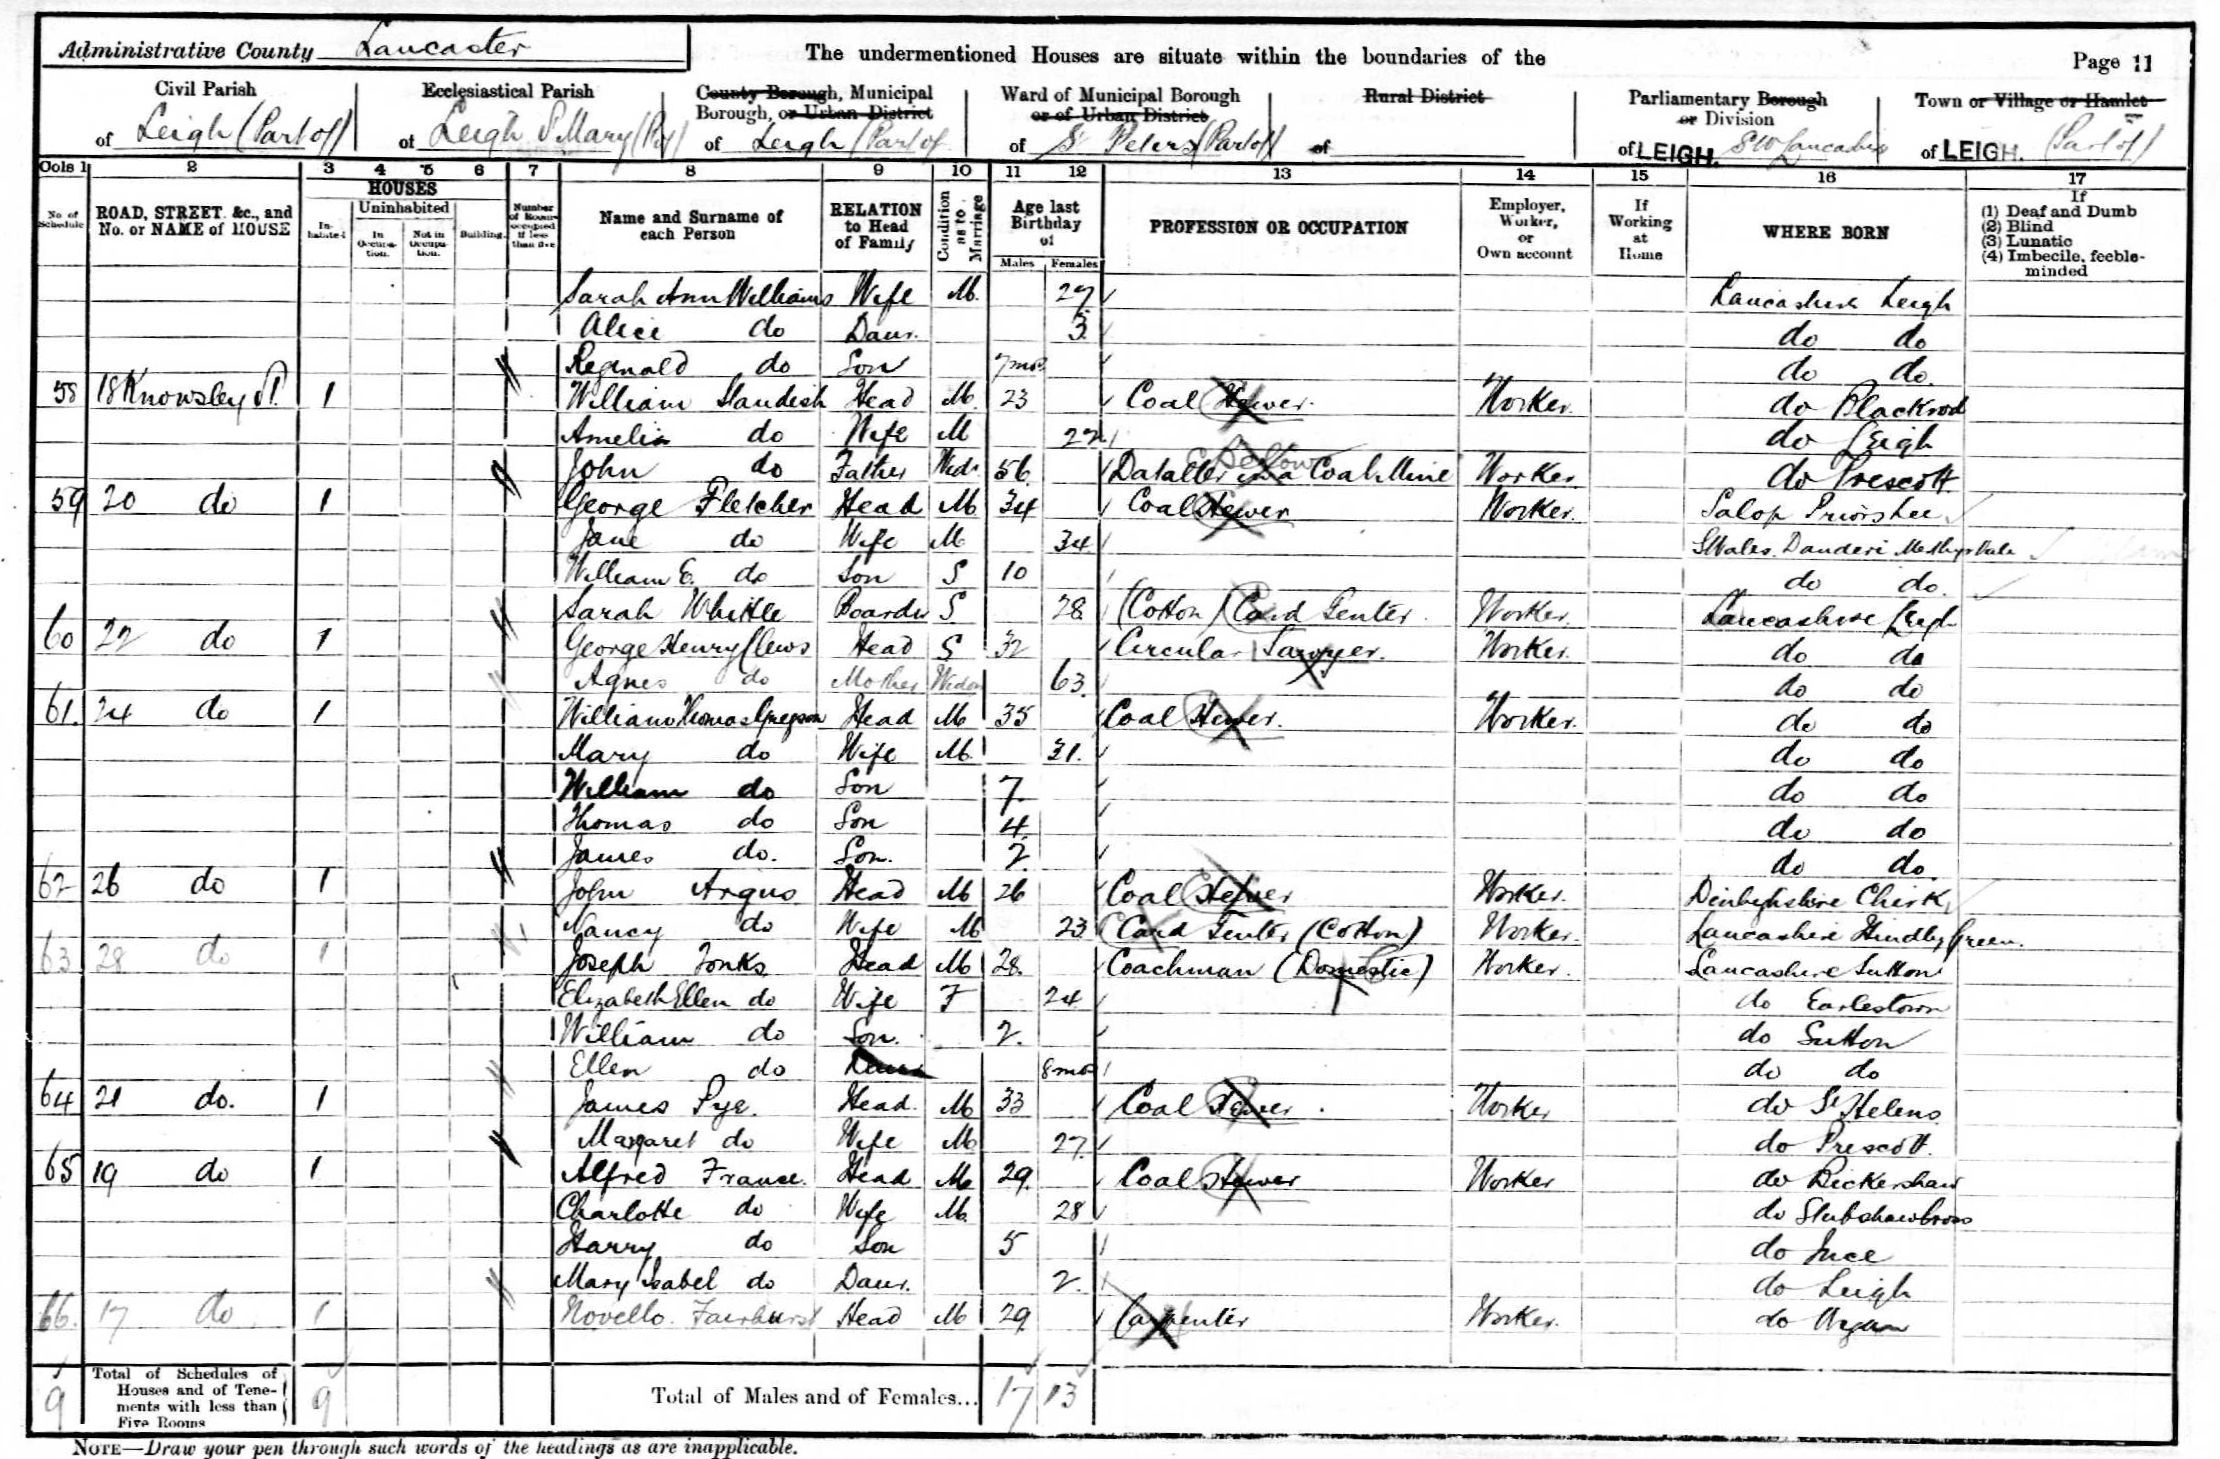 Administrative County Lancaster The undermentioned Houses are situate within the boundaries of the Page 11
Civil Parish Ecclesiastical Parish County Borough, Municipal Borough, or Urban District Ward of Municipal Borough or of Urban District Rural District Parliamentary Borough or Division Town or Village or Hamlet
of Leigh (Part of) of Leigh S Mary (Pt) of Leigh (Part of of St Peters (Part of) of of LEIGH. S W Lancashire of LEIGH. (Part of)
Cols 1 2 3 4 5 6 7 8 9 10 11 12 13 14 15 16 17
No. of Schedule ROAD, STREET, &c., and No. or NAME of HOUSE HOUSES Inhabited Uninhabited In Occupation. Not in Occupation. Building Number of Rooms occupied if less than five Name and Surname of each Person RELATION to Head of Family Condition as to Marriage Age last Birthday of Males Females PROFESSION OR OCCUPATION Employer, Worker, or Own account If Working at Home WHERE BORN If (1) Deaf and Dumb (2) Blind (3) Lunatic (4) Imbecile, feeble-minded
Sarah Ann Williams Wife M. 27 Lancashire Leigh
Alice do Daur. 3 do do
Reginald do Son 7 mos do do.
58 18 Knowsley St. 1 William Standish Head M. 23 Coal Hewer. Worker. do Blackrod
Amelia do Wife M 22 do Leigh
John do Father Widr 56 Dataller in a Coal Mine Worker. do Prescott
59 20 do 1 George Fletcher Head M 34 Coal Hewer Worker. Salop Priorslee
Jane do Wife M 34 S Wales. Danderi Merthyr Vale
William E. do Son S 10 do do.
Sarah Whittle Boarder S 28 (Cotton) Card Tenter. Worker. Lancashire Leigh
60 22 do 1 George Henry Clews Head S 32 Circular Sawyer. Worker. do do
Agnes do Mother Widow 63. do do
61. 24 do 1 William Thomas Gregson Head M 35 Coal Hewer. Worker. do do
Mary do Wife M. 31. do do
William do Son 7 do do
Thomas do Son 4 do do
James do. Son. 2 do do.
62 26 do 1 John Argus Head M 26 Coal Hewer Worker. Denbighshire Chirk
Nancy do Wife M 23 Card Tenter (Cotton) Worker. Lancashire Hindley Green.
63 28 do 1 Joseph Tonks Head M 28. Coachman (Domestic) Worker. Lancashire Sutton
Elizabeth Ellen do Wife F 24 do Earlestown
William do Son. 2. do Sutton
Ellen do Daur 8 mos do do
64 21 do. 1 James Pye. Head. M 33 Coal Hewer. Worker do St Helens
Margaret do Wife M 27. do Prescott.
65 19 do 1 Alfred France. Head M 29. Coal Hewer Worker do Bickershaw
Charlotte do Wife M. 28 do Stubshaw Cross
Harry do Son 5 do Ince
Mary Isabel do Daur. 2. do Leigh
66. 17 do 1 Novello Fairhurst Head M 29. Carpenter Worker. do Wigan
9 Total of Schedules of Houses and of Tenements with less than Five Rooms 9 Total of Males and of Females... 17 13
NOTE—Draw your pen through such words of the headings as are inapplicable.